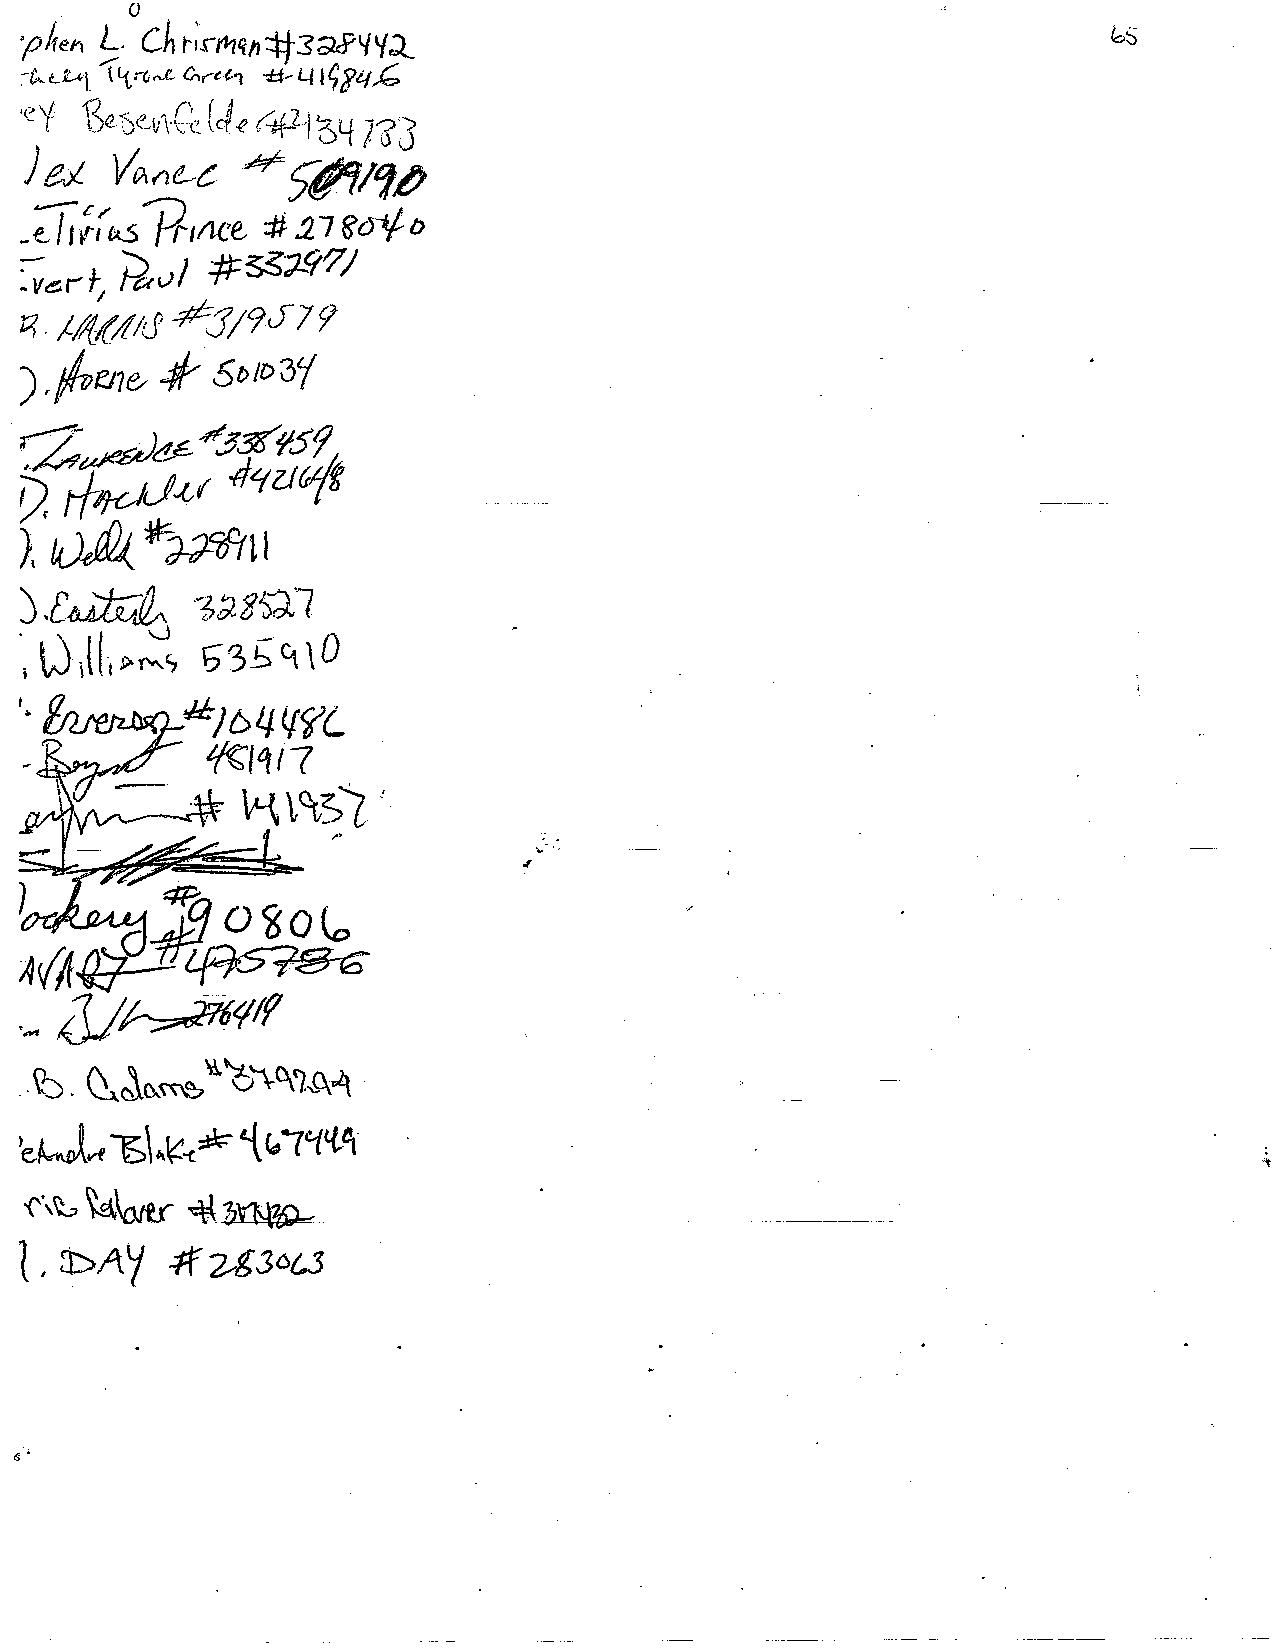 65
phen L. Chrisman #328442
Tyrone Green #419846
ey Besenfelder #134783
lex Vanec # 509190
eTirius Prince # 278040
vert, Paul #332971
R. HARRIS #319579
D. HORNE # 501034
LAWRENCE #338459
D. HACKLER #421648
). Wells #228911
D. Easterly 328527
. Williams 535910
#104486
481917
# 141937
lockery #90806
AVARY #475786
276419
B. Adams #379294
eAndre Blake #467449
ric
l. DAY #283063